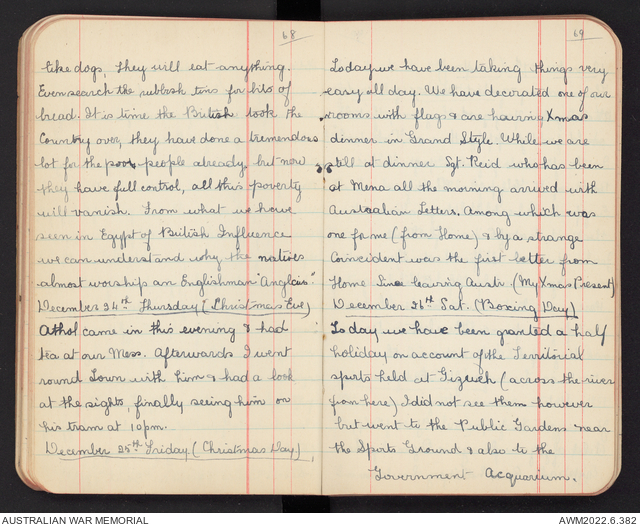 68
like dogs, they will eat anything.
Even search the rubbish tins for bits of
bread. It is time the British took the
Country over, they have done a tremendous
lot for the poor people already, but now
they have full control, all this poverty
will vanish. From what we have
seen in Egypt of British Influence
we can understand why the natives
almost worship an Englishman "Anglais".
December 24th Thursday (Christmas Eve)
Athol came in this evening & had
tea at our Mess. Afterwards I went
round Town with him & had a look
at the sights, finally seeing him on
his tram at 10pm.
December 25th Friday (Christmas Day),
69
Today we have been taking things very
easy all day. We have decorated one of our
rooms with flags & are having Xmas
dinner in Grand Style. While we are
still at dinner Sgt. Reid who has been
at Mena all the morning arrived with
Australian Letters. Among which was
one for me (from Home) & by a strange
Coincident was the first letter from
Home since leaving Austr. (My Xmas Present)
December 26th Sat. (Boxing Day)
Today we have been granted a half
holiday on account of the Territorial
sports held at Gizireh (across the river
from here) I did not see them however
but went to the Public Gardens near
the Sports Ground & also to the
Government Acquarium.
AUSTRALIAN WAR MEMORIAL
AWM2022.6.382